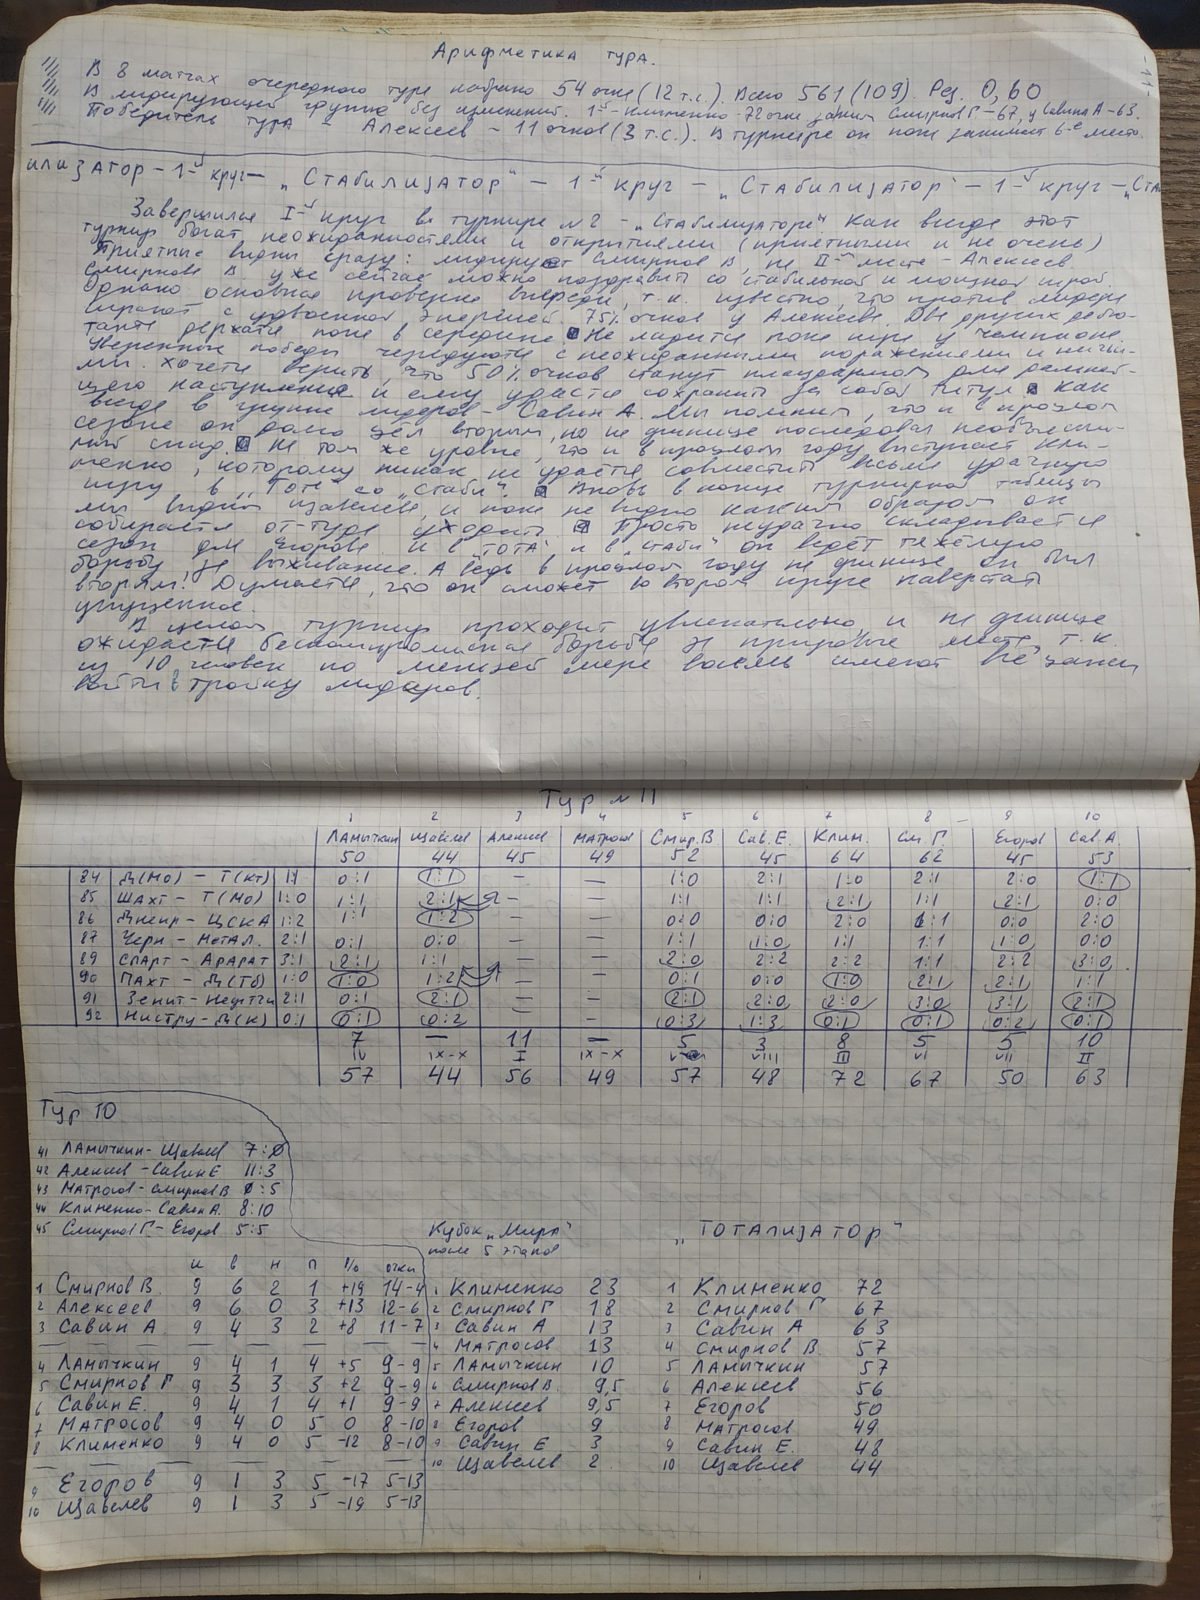 Арифметика тура.
В 8 матчах очередного тура набрано 54 очка (12 т.с.). Всего 561 (109). Рез. 0,60
В лидирующей группе без изменений. 1-й Клименко - 72 очка затем Смирнов Г - 67, у Савина А - 63.
Победитель тура - Алексеев - 11 очков (3 т.с.). В турнире он пока занимает 6-е место.
илизатор - 1-й круг - „Стабилизатор" - 1-й круг - „Стабилизатор" - 1-й круг - „Ста
Завершился I-й круг в турнире №2 - „Стабилизаторе". Как всегда этот
турнир богат неожиданностями и открытиями (приятными и не очень)
Приятные видны сразу: лидирует Смирнов В, на II-м месте - Алексеев
Смирнова В уже сейчас можно поздравить со стабильной и мощной игрой.
Однако основная проверка впереди, т.к. известно, что против лидера
играют с удвоенной энергией. 75% очков у Алексеева. Два других дебю-
танта держатся пока в середине. Не ладится пока игра у чемпиона.
Уверенные победы чередуются с неожиданными поражениями и ничьи-
ми. Хочется верить, что 50% очков станут плацдармом для дальней-
шего наступления и ему удастся сохранить за собой титул. Как
всегда в группе лидеров - Савин А. Мы помним, что и в прошлом
сезоне он долго шёл вторым, но на финише последовал необъясни-
мый спад. На том же уровне, что и в прошлом году выступает Кли-
менко, которому никак не удаётся совместить весьма удачную
игру в „Тоте" со „Стаби". Вновь в конце турнирной таблицы
мы видим Щавелева, и пока не видно каким образом он
собирается оттуда уходить. Просто неудачно складывается
сезон для Егорова. И в „Тота" и в „Стаби" он ведёт тяжёлую
борьбу за выживание. А ведь в прошлом году на финише он был
вторым! Думается, что он сможет во втором круге наверстать
упущенное.
В целом турнир проходит увлекательно и на финише
ожидается бескомпромиссная борьба за призовые места, т.к.
из 10 человек по меньшей мере восемь имеют все шансы
войти в тройку лидеров.
Тур №11
1 2 3 4 5 6 7 8 9 10
Ламычкин Щавелев Алексеев Матросов Смир.В Сав.Е. Клим. См.Г. Егоров Сав.А
50 44 45 49 52 45 64 62 45 53
84 Д(Мо) - Т(Кт) 1:1 0:1 1:1 — — 1:0 2:1 1:0 2:1 2:0 1:1
85 Шахт - Т(Мо) 1:0 1:1 2:1 — — 1:1 1:1 2:1 1:1 2:1 0:0
86 Днепр - ЦСКА 1:2 1:1 1:2 — — 0:0 0:0 2:0 1:1 0:0 2:0
87 Черн - Метал. 2:1 0:1 0:0 — — 1:1 1:0 1:1 1:1 1:0 0:0
89 Спарт - Арарат 3:1 2:1 1:1 — — 2:0 2:2 2:2 1:1 2:2 3:0
90 Пахт - Д(Тб) 1:0 1:0 1:2 — — 0:1 0:0 1:0 2:1 2:1 1:1
91 Зенит - Нефтчи 2:1 0:1 2:1 — — 2:1 2:0 2:0 3:0 3:1 2:1
92 Нистру - Д(К) 0:1 0:1 0:2 — — 0:3 1:3 0:1 0:1 0:2 0:1
7 — 11 — 5 3 8 5 5 10
IV IX-X I IX-X V VIII III VI VII II
57 44 56 49 57 48 72 67 50 63
Тур 10
41 Ламычкин - Щавелев 7:0
42 Алексеев - Савин Е 11:3
43 Матросов - Смирнов В 0:5
44 Клименко - Савин А. 8:10
45 Смирнов Г - Егоров 5:5
и в н п +/- очки
1 Смирнов В 9 6 2 1 +19 14-4
2 Алексеев 9 6 0 3 +13 12-6
3 Савин А 9 4 3 2 +8 11-7
4 Ламычкин 9 4 1 4 +5 9-9
5 Смирнов Г 9 3 3 3 +2 9-9
6 Савин Е. 9 4 1 4 +1 9-9
7 Матросов 9 4 0 5 0 8-10
8 Клименко 9 4 0 5 -12 8-10
9 Егоров 9 1 3 5 -17 5-13
10 Щавелев 9 1 3 5 -19 5-13
Кубок „Мира"
после 5 этапов
1 Клименко 23
2 Смирнов Г 18
3 Савин А 13
4 Матросов 13
5 Ламычкин 10
6 Смирнов В. 9,5
7 Алексеев 9,5
8 Егоров 9
9 Савин Е 3
10 Щавелев 2
„ТОТАЛИЗАТОР"
1 Клименко 72
2 Смирнов Г 67
3 Савин А 63
4 Смирнов В 57
5 Ламычкин 57
6 Алексеев 56
7 Егоров 50
8 Матросов 49
9 Савин Е. 48
10 Щавелев 44